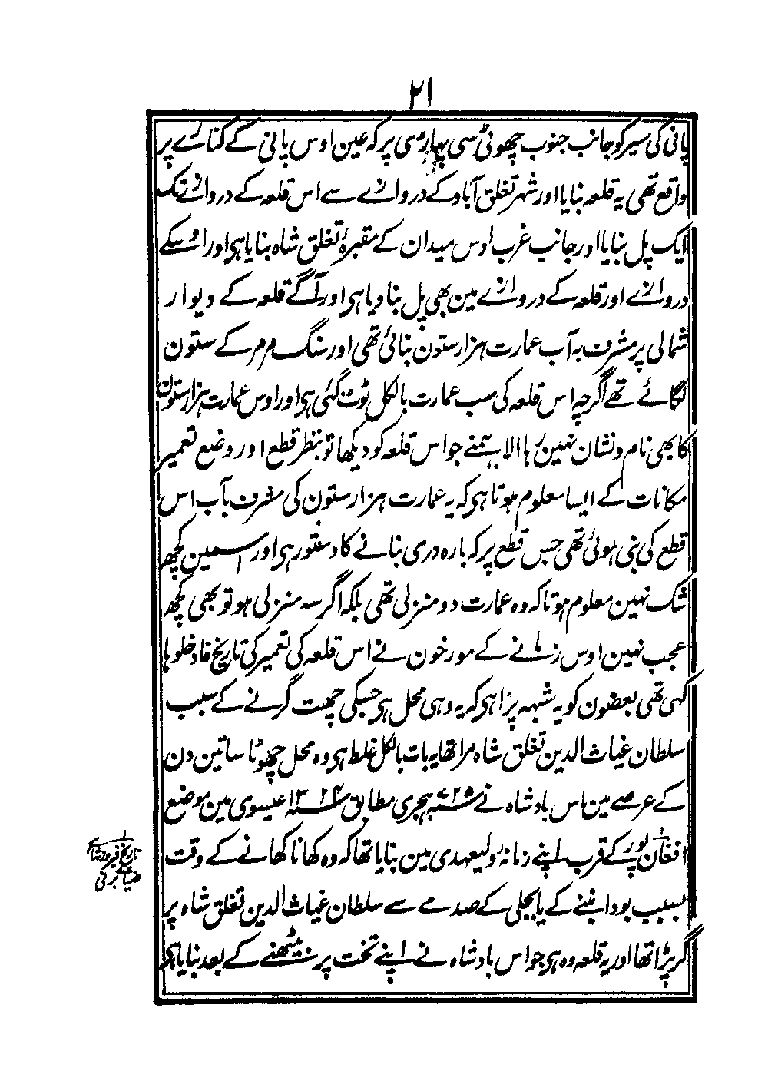 ۲۱
پانی کی سیر کو جانب جنوب چھوٹی سی پہاڑی پر کہ عین اوس پانی کے کنارے پر
واقع تھی یہ قلعہ بنایا اور شہر تغلق آباد کے دروازے سے اس قلعہ کے دروازے تک
ایک پل بنایا اور جانب غرب اوس میدان کے مقبرۂ تغلق شاہ بنایا ہی اور اوسکے
دروازے اور قلعہ کے دروازے مین بھی پل بنا دیا ہی اور آگے قلعہ کے دیوار
شمالی پر مشرف بہ آب عمارت ہزار ستون بنائی تھی اور سنگ مرمر کے ستون
لگائے تھے اگرچہ اس قلعہ کی سب عمارت بالکل ٹوٹ گئی ہی اور اوس عمارت ہزار ستون
کا بھی نام و نشان نہین رہا الا ہمنے جو اس قلعہ کو دیکھا تو بنظر قطع اور وضع تعمیر
مکانات کے ایسا معلوم ہوتا ہی کہ یہ عمارت ہزار ستون کی مشرف بآب اس
قطع کی بنی ہوئی تھی جس قطع پر کہ بارہ دری بنانے کا دستور ہی اور اسمین کچھ
شک نہین معلوم ہوتا کہ وہ عمارت دو منزلی تھی بلکہ اگر سہ منزلی ہو تو بھی کچھ
عجب نہین اوس زمانے کے مورخون نے اس قلعہ کی تعمیر کی تاریخ فادخلوہا
کہی تھی بعضون کو یہ شبہہ پڑا ہی کہ یہ وہی محل ہی جسکی چھت گرنے کے سبب
سلطان غیاث الدین تغلق شاہ مرا تھا یہ بات بالکل غلط ہی وہ محل چھوٹا سا تین دن
کے عرصے مین اس بادشاہ نے ۷۲۵ ہجری مطابق ۱۳۲۴ عیسوی مین موضع
افغان پور کے قریب اپنے زمانہ ولیعہدی مین بنایا تھا کہ وہ کھانا کھانے کے وقت
بسبب بودا بننے کے یا بجلی کے صدمے سے سلطان غیاث الدین تغلق شاہ پر
گر پڑا تھا اور یہ قلعہ وہ ہی جو اس بادشاہ نے اپنے تخت پر بیٹھنے کے بعد بنایا ہی
تاریخ فیروز شاہی
ضیاء برنی